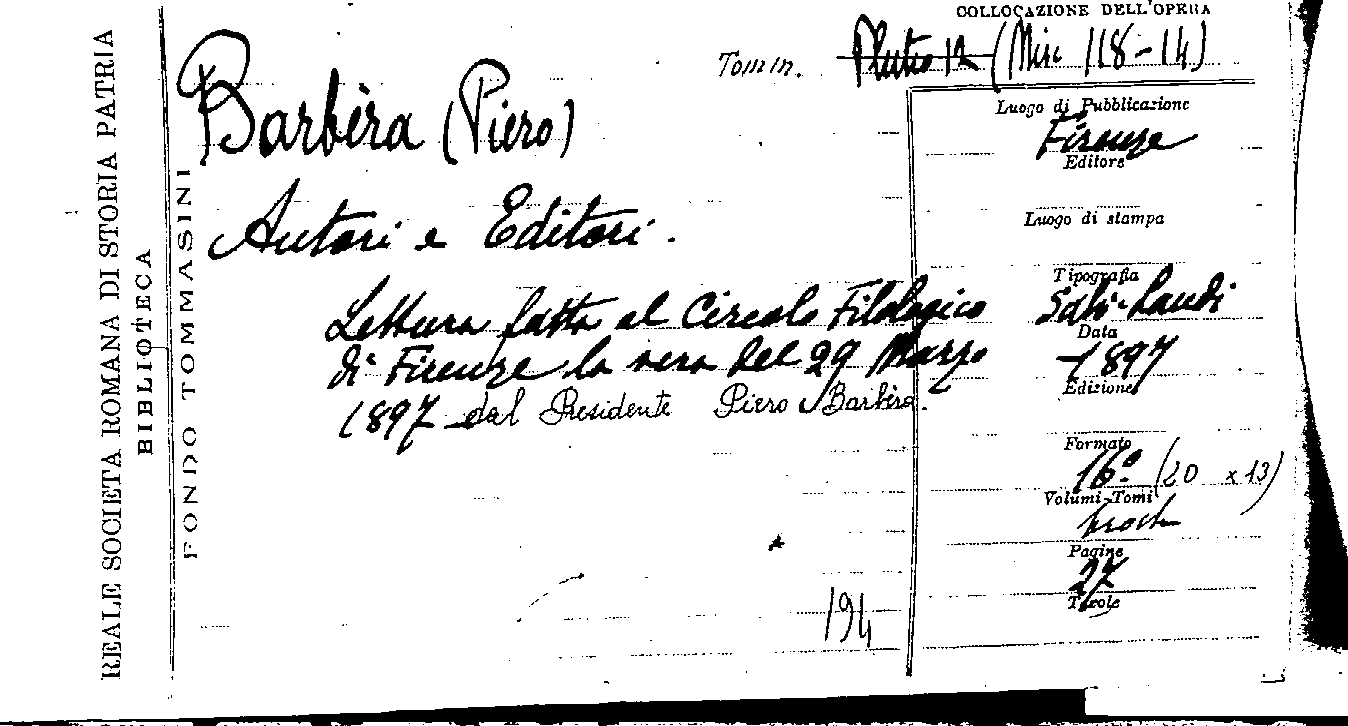 REALE SOCIETÀ ROMANA DI STORIA PATRIA
BIBLIOTECA
FONDO TOMMASINI
COLLOCAZIONE DELL'OPERA
Tomm. Pluteo 12 (Misc 118-14)
Barbèra (Piero)
Autori e Editori.
Lettura fatta al Circolo Filologico
di Firenze la sera del 29 Marzo
1897 dal Presidente Piero Barbèra.
194
Luogo di Pubblicazione
Firenze
Editore
Luogo di stampa
Tipografia
Salv. Landi
Data
1897
Edizione
Formato
16° (20 x 13)
Volumi-Tomi
broch
Pagine
27
Tavole